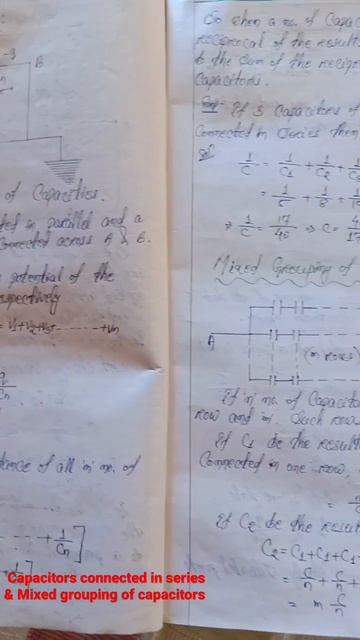 B
of Capacities.
in parallel and a
connected across A & B.
potential of the
respectively
= V1+V2+V3+ ------ +Vn
q
Cn
tance of all 'n' no. of
+ 1/Cn]
So when a no. of Capac
reciprocal of the result
to the sum of the recipr
Capacitors.
If 3 Capacitors of
Connected in Series then
1/C = 1/C1 + 1/C2 +
= 1/5 + 1/8 +
⇒ 1/C = 17/40 ⇒ C =
Mixed Grouping of
A
(m rows)
If 'n' no. of Capacito
row and 'm' Such row
If C1 be the result
Connected in one row,
If C2 be the resul
C2 = C1+C1+C1
= C/n + C/n +
= m C/n
Capacitors connected in series
& Mixed grouping of capacitors